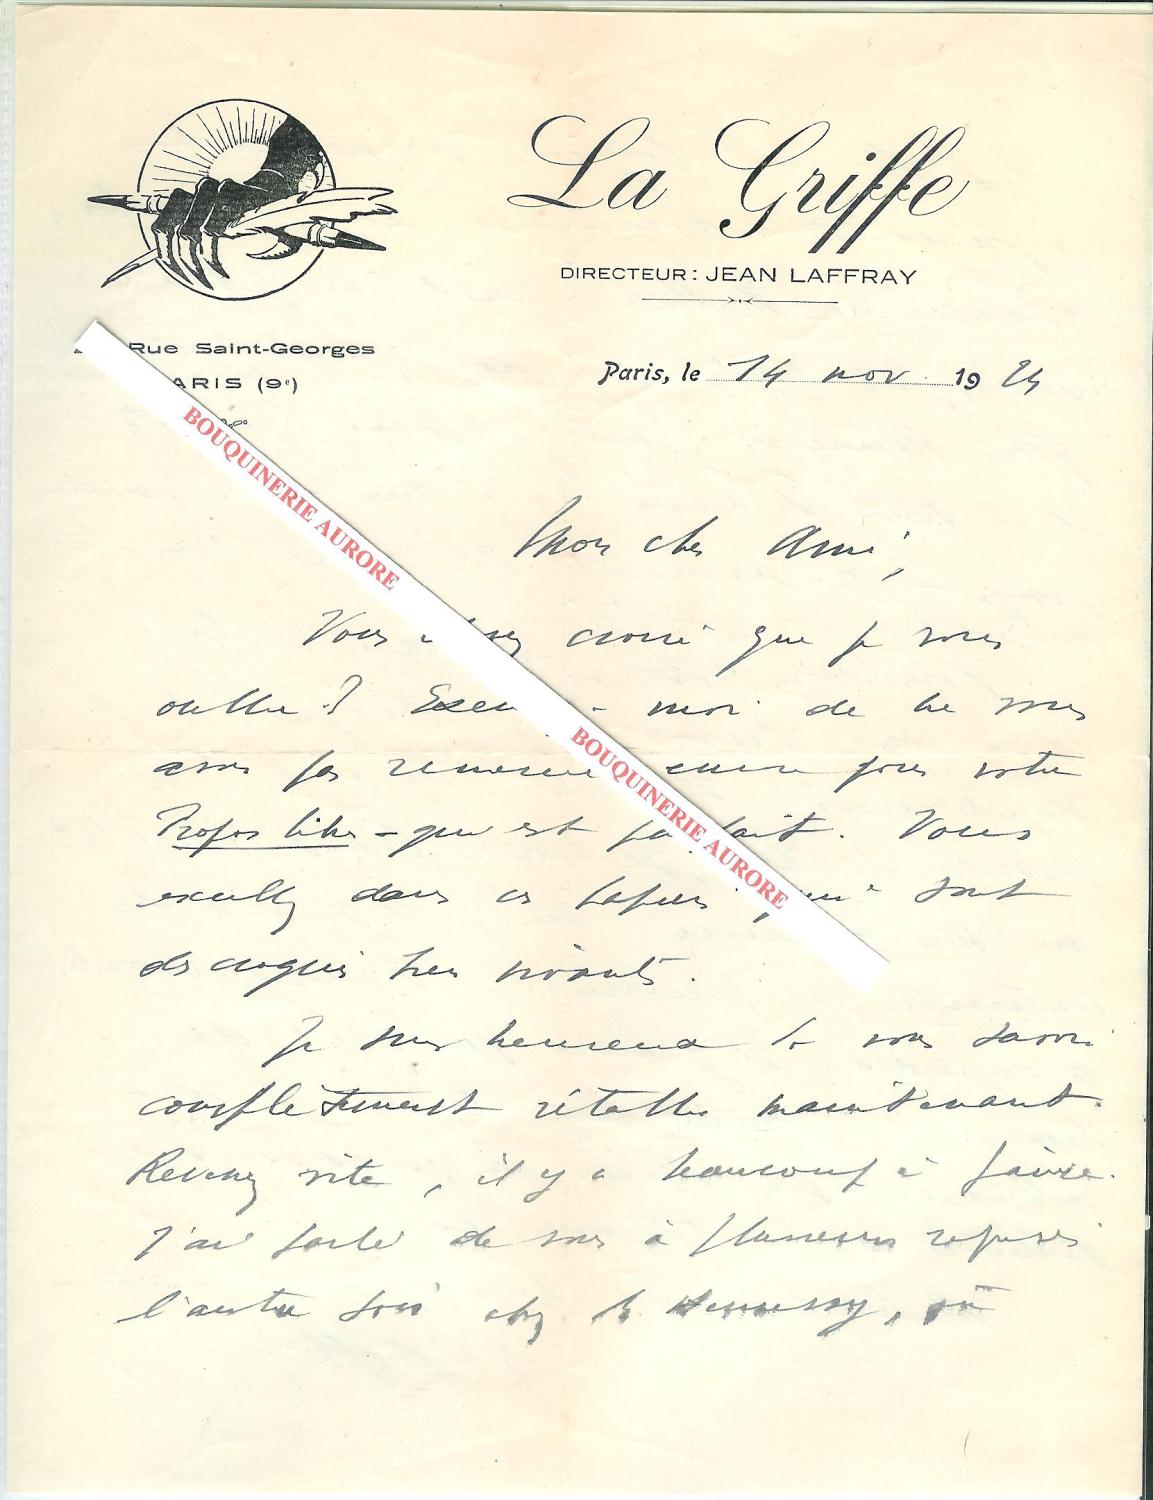 La Griffe
DIRECTEUR: JEAN LAFFRAY
Rue Saint-Georges
ARIS (9e)
Paris, le 14 nov. 1924
BOUQUINERIE AURORE
BOUQUINERIE AURORE
Mon cher Ami,
Vous croire que je vous
oublie ? moi de ne vous
avoir pas remercié encore pour votre
Propos libre - qui est parfait. Vous
excellez dans ces papiers qui sont
des croquis très vivants.
Je suis heureux de vous savoir
complètement rétabli maintenant.
Revenez vite, il y a beaucoup à faire.
J'ai parlé de vous à plusieurs reprises
l'autre soir chez Hennessy, où